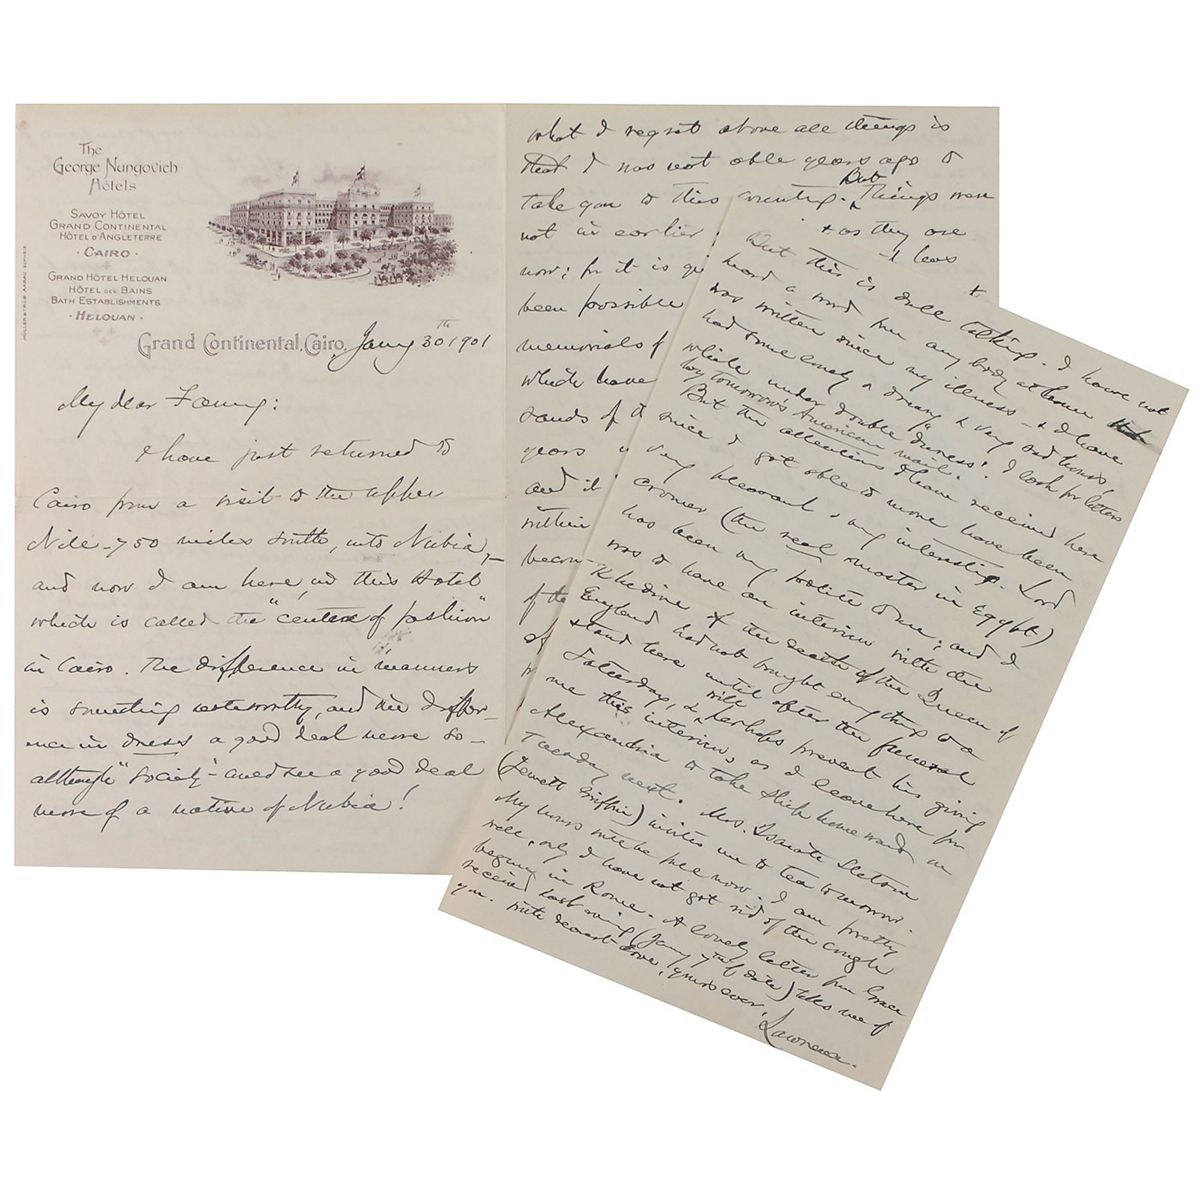 The
George Nungovich
Hôtels
SAVOY HÔTEL
GRAND CONTINENTAL
HÔTEL D'ANGLETERRE
· CAIRO ·
GRAND HÔTEL HELOUAN
HÔTEL DES BAINS
BATH ESTABLISHMENTS
· HELOUAN ·
Grand Continental, Cairo, Jany 30th 1901
My dear Fanny:
I have just returned to
Cairo from a visit to the upper
Nile - 750 miles South, into Nubia, -
and now I am here in this Hotel
which is called the "centre of fashion"
in Cairo. The difference in manners
is something noteworthy, and the differ-
ence in dress a good deal more so -
although "Society" - and see a good deal
more of a native of Nubia!
what I regret above all things is
that I was not able years ago to
take you to this country. But Things were
not in earlier + as they are
now: for it is I has
been possible +
memorials of
which have
sands of t
years
and it
within
becom-
of the
of
But this is dull talking. I have not
heard a word from any body at home that
was written since my illness - & I have
had some lonely & dreary & very sad hours,
while under double "duress"! I look for letters
by tomorrow's American mail.
But the attentions I have received here
since I got able to move have been
very pleasant & very interesting. Lord
Cromer (the real master in Egypt)
has been very polite to me; and I
was to have an interview with the
Khedive if the death of the Queen of
England had not brought everything to a
stand here until after the funeral
Saturday, & will perhaps prevent his giving
me this interview, as I leave here for
Alexandria to take ship homeward on
Tuesday next. Mrs. Slatom
(Jewett Griffin) invites me to tea tomorrow.
My hours will be full now. I am pretty
well, only I have not got rid of the cough
begun in Rome. A lovely letter from Grace
received last evng (Jany 7th of date) tells me of
you. with dearest love, yours ever,
Lawrence.